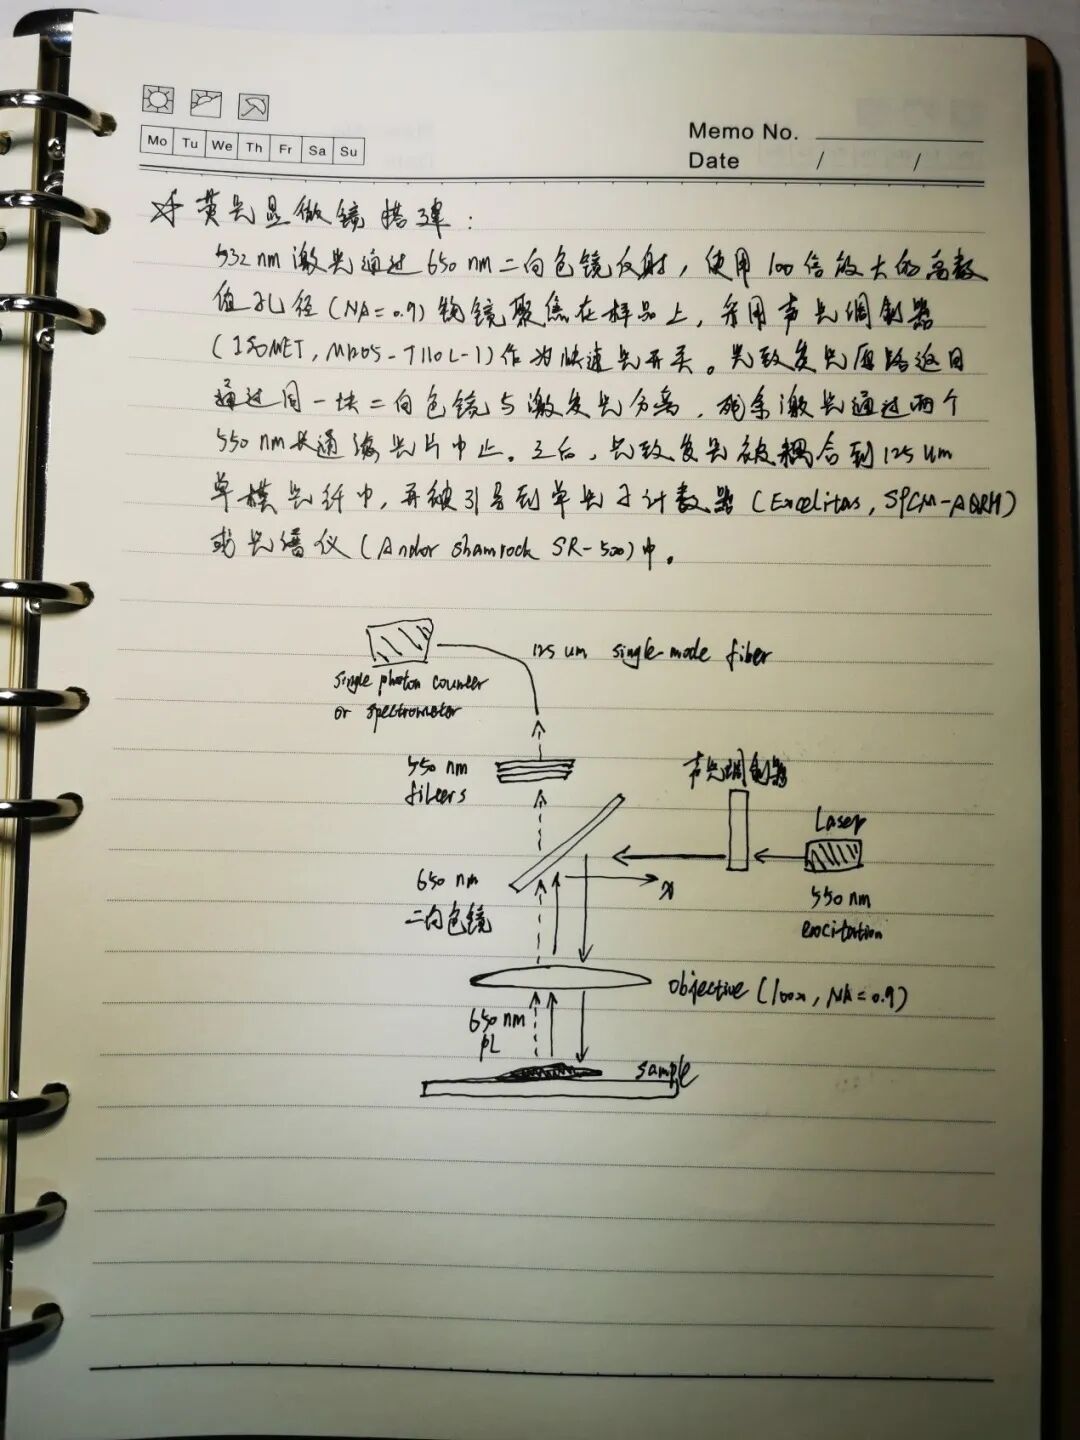 Mo Tu We Th Fr Sa Su
Memo No.
Date / /
☆ 荧光显微镜搭建:
532 nm 激光通过 650 nm 二向色镜反射, 使用 100 倍放大的高数
值孔径 (NA=0.9) 物镜聚焦在样品上, 并用声光调制器
(ISOMET, M1205-T110L-1) 作为快速光开关。光致发光原路返回
通过同一块二向色镜与激发光分离, 残余激光通过两个
550 nm 长通滤光片中止。之后, 光致发光被耦合到 125 um
单模光纤中, 再被引导到单光子计数器 (Excelitas, SPCM-AQRH)
或光谱仪 (Andor Shamrock SR-500) 中。
125 um single-mode fiber
single photon counter
or spectrometer
550 nm
filters
声光调制器
Laser
650 nm
二向色镜
x
550 nm
excitation
objective (100x, NA=0.9)
650 nm
PL
sample